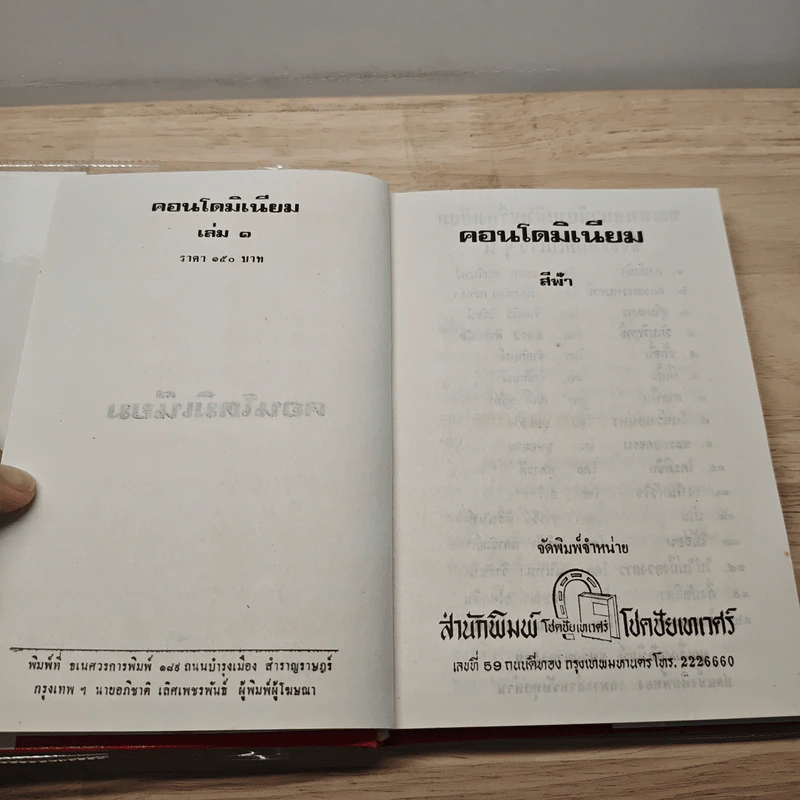 คอนโดมิเนียม
เล่ม ๑
ราคา ๑๕๐ บาท
คอนโดมิเนียม
พิมพ์ที่ ธเนศวรการพิมพ์ ๑๘๙ ถนนบำรุงเมือง สำราญราษฎร์
กรุงเทพ ฯ นายอภิชาติ เลิศเพชรพันธ์ ผู้พิมพ์ผู้โฆษณา
คอนโดมิเนียม
สีฟ้า
จัดพิมพ์จำหน่าย
สำนักพิมพ์ โชคชัยเทเวศร์ โชคชัยเทเวศร์
เลขที่ 59 ถนนตีทอง กรุงเทพมหานคร โทร. 2226660